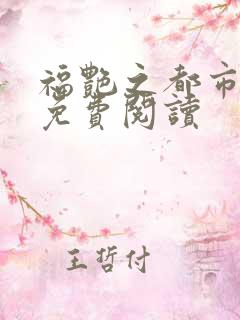 福艷之都市
免費閱讀
王哲付